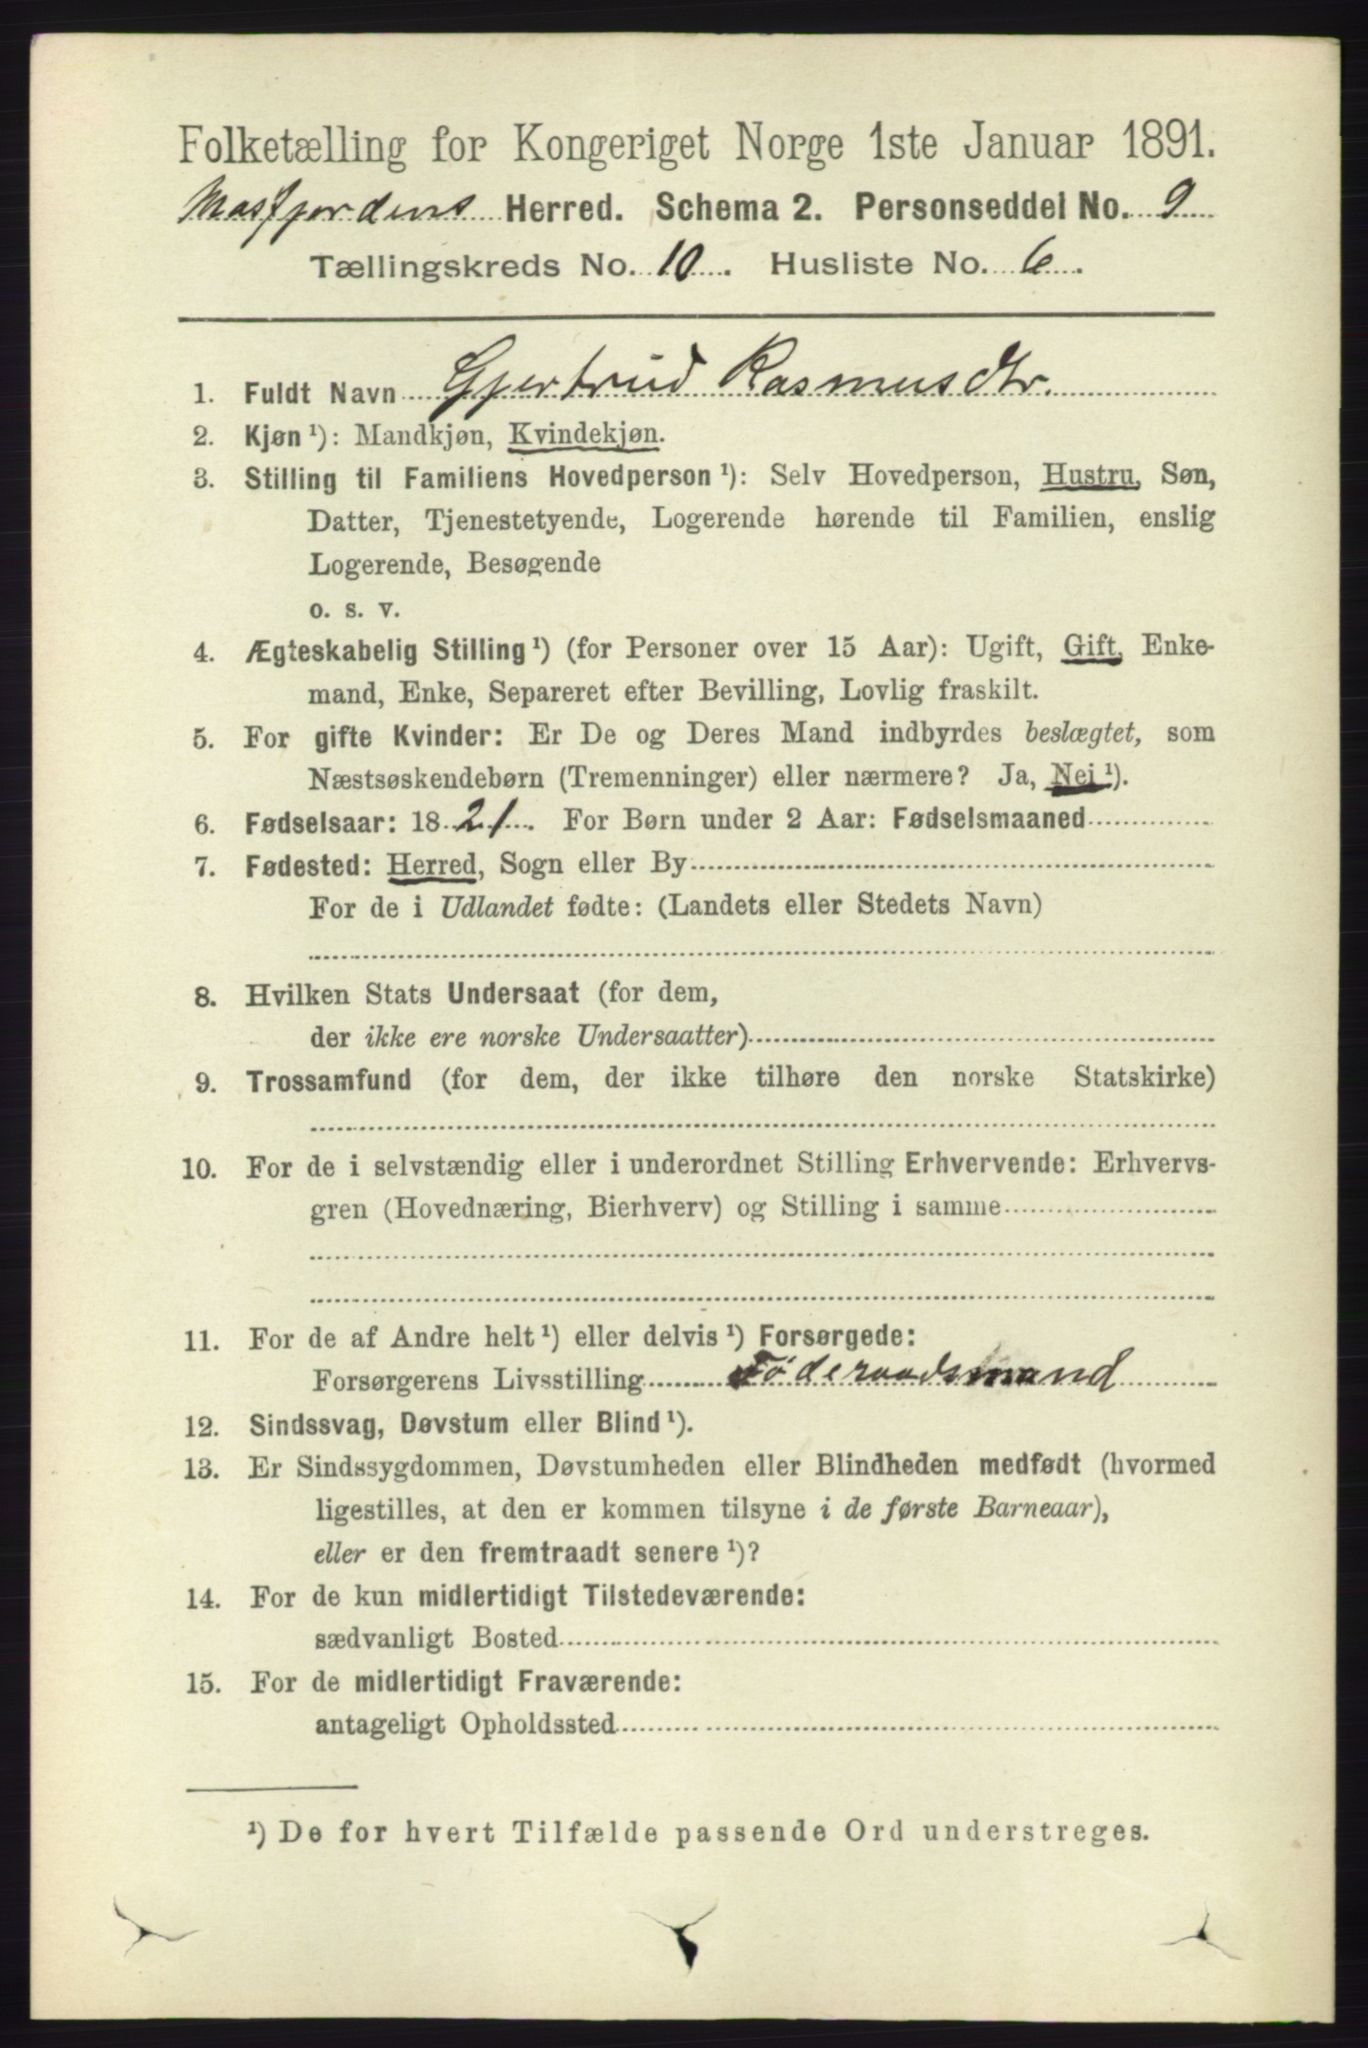 Folketælling for Kongeriget Norge 1ste Januar 1891.
Masfjordens Herred. Schema 2. Personseddel No. 9
Tællingskreds No. 10. Husliste No. 6.
1. Fuldt Navn Gjertrud Rasmusdtr.
2. Kjøn ¹): Mandkjøn, Kvindekjøn.
3. Stilling til Familiens Hovedperson ¹): Selv Hovedperson, Hustru, Søn,
Datter, Tjenestetyende, Logerende hørende til Familien, enslig
Logerende, Besøgende
o. s. v.
4. Ægteskabelig Stilling ¹) (for Personer over 15 Aar): Ugift, Gift, Enke-
mand, Enke, Separeret efter Bevilling, Lovlig fraskilt.
5. For gifte Kvinder: Er De og Deres Mand indbyrdes beslægtet, som
Næstsøskendebørn (Tremenninger) eller nærmere? Ja, Nei ¹).
6. Fødselsaar: 1821. For Børn under 2 Aar: Fødselsmaaned
7. Fødested: Herred, Sogn eller By
For de i Udlandet fødte: (Landets eller Stedets Navn)
8. Hvilken Stats Undersaat (for dem,
der ikke ere norske Undersaatter)
9. Trossamfund (for dem, der ikke tilhøre den norske Statskirke)
10. For de i selvstændig eller i underordnet Stilling Erhvervende: Erhvervs-
gren (Hovednæring, Bierhverv) og Stilling i samme
11. For de af Andre helt ¹) eller delvis ¹) Forsørgede:
Forsørgerens Livsstilling Föderaadsmand
12. Sindssvag, Døvstum eller Blind ¹).
13. Er Sindssygdommen, Døvstumheden eller Blindheden medfødt (hvormed
ligestilles, at den er kommen tilsyne i de første Barneaar),
eller er den fremtraadt senere ¹)?
14. For de kun midlertidigt Tilstedeværende:
sædvanligt Bosted
15. For de midlertidigt Fraværende:
antageligt Opholdssted
¹) De for hvert Tilfælde passende Ord understreges.